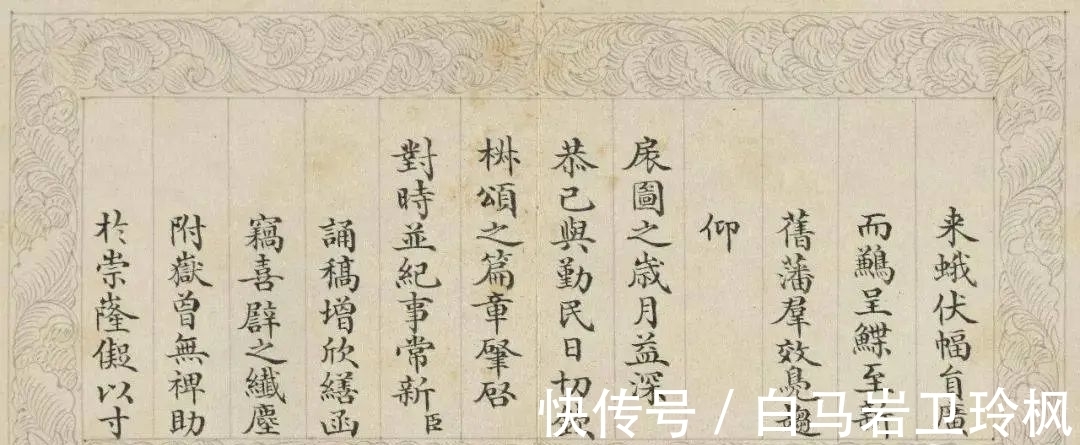 来蛾伏幅員廣
而鷫呈鰈至
舊藩羣效鳧趨
仰
扆圖之歲月益深
恭己與勤民日切
椒頌之篇章肇啓
對時並紀事常新臣
誦稿增欣繕函
竊喜辟之纖塵
附嶽曾無裨助
於崇隆儗以寸
快传号 / 白马岩卫玲枫